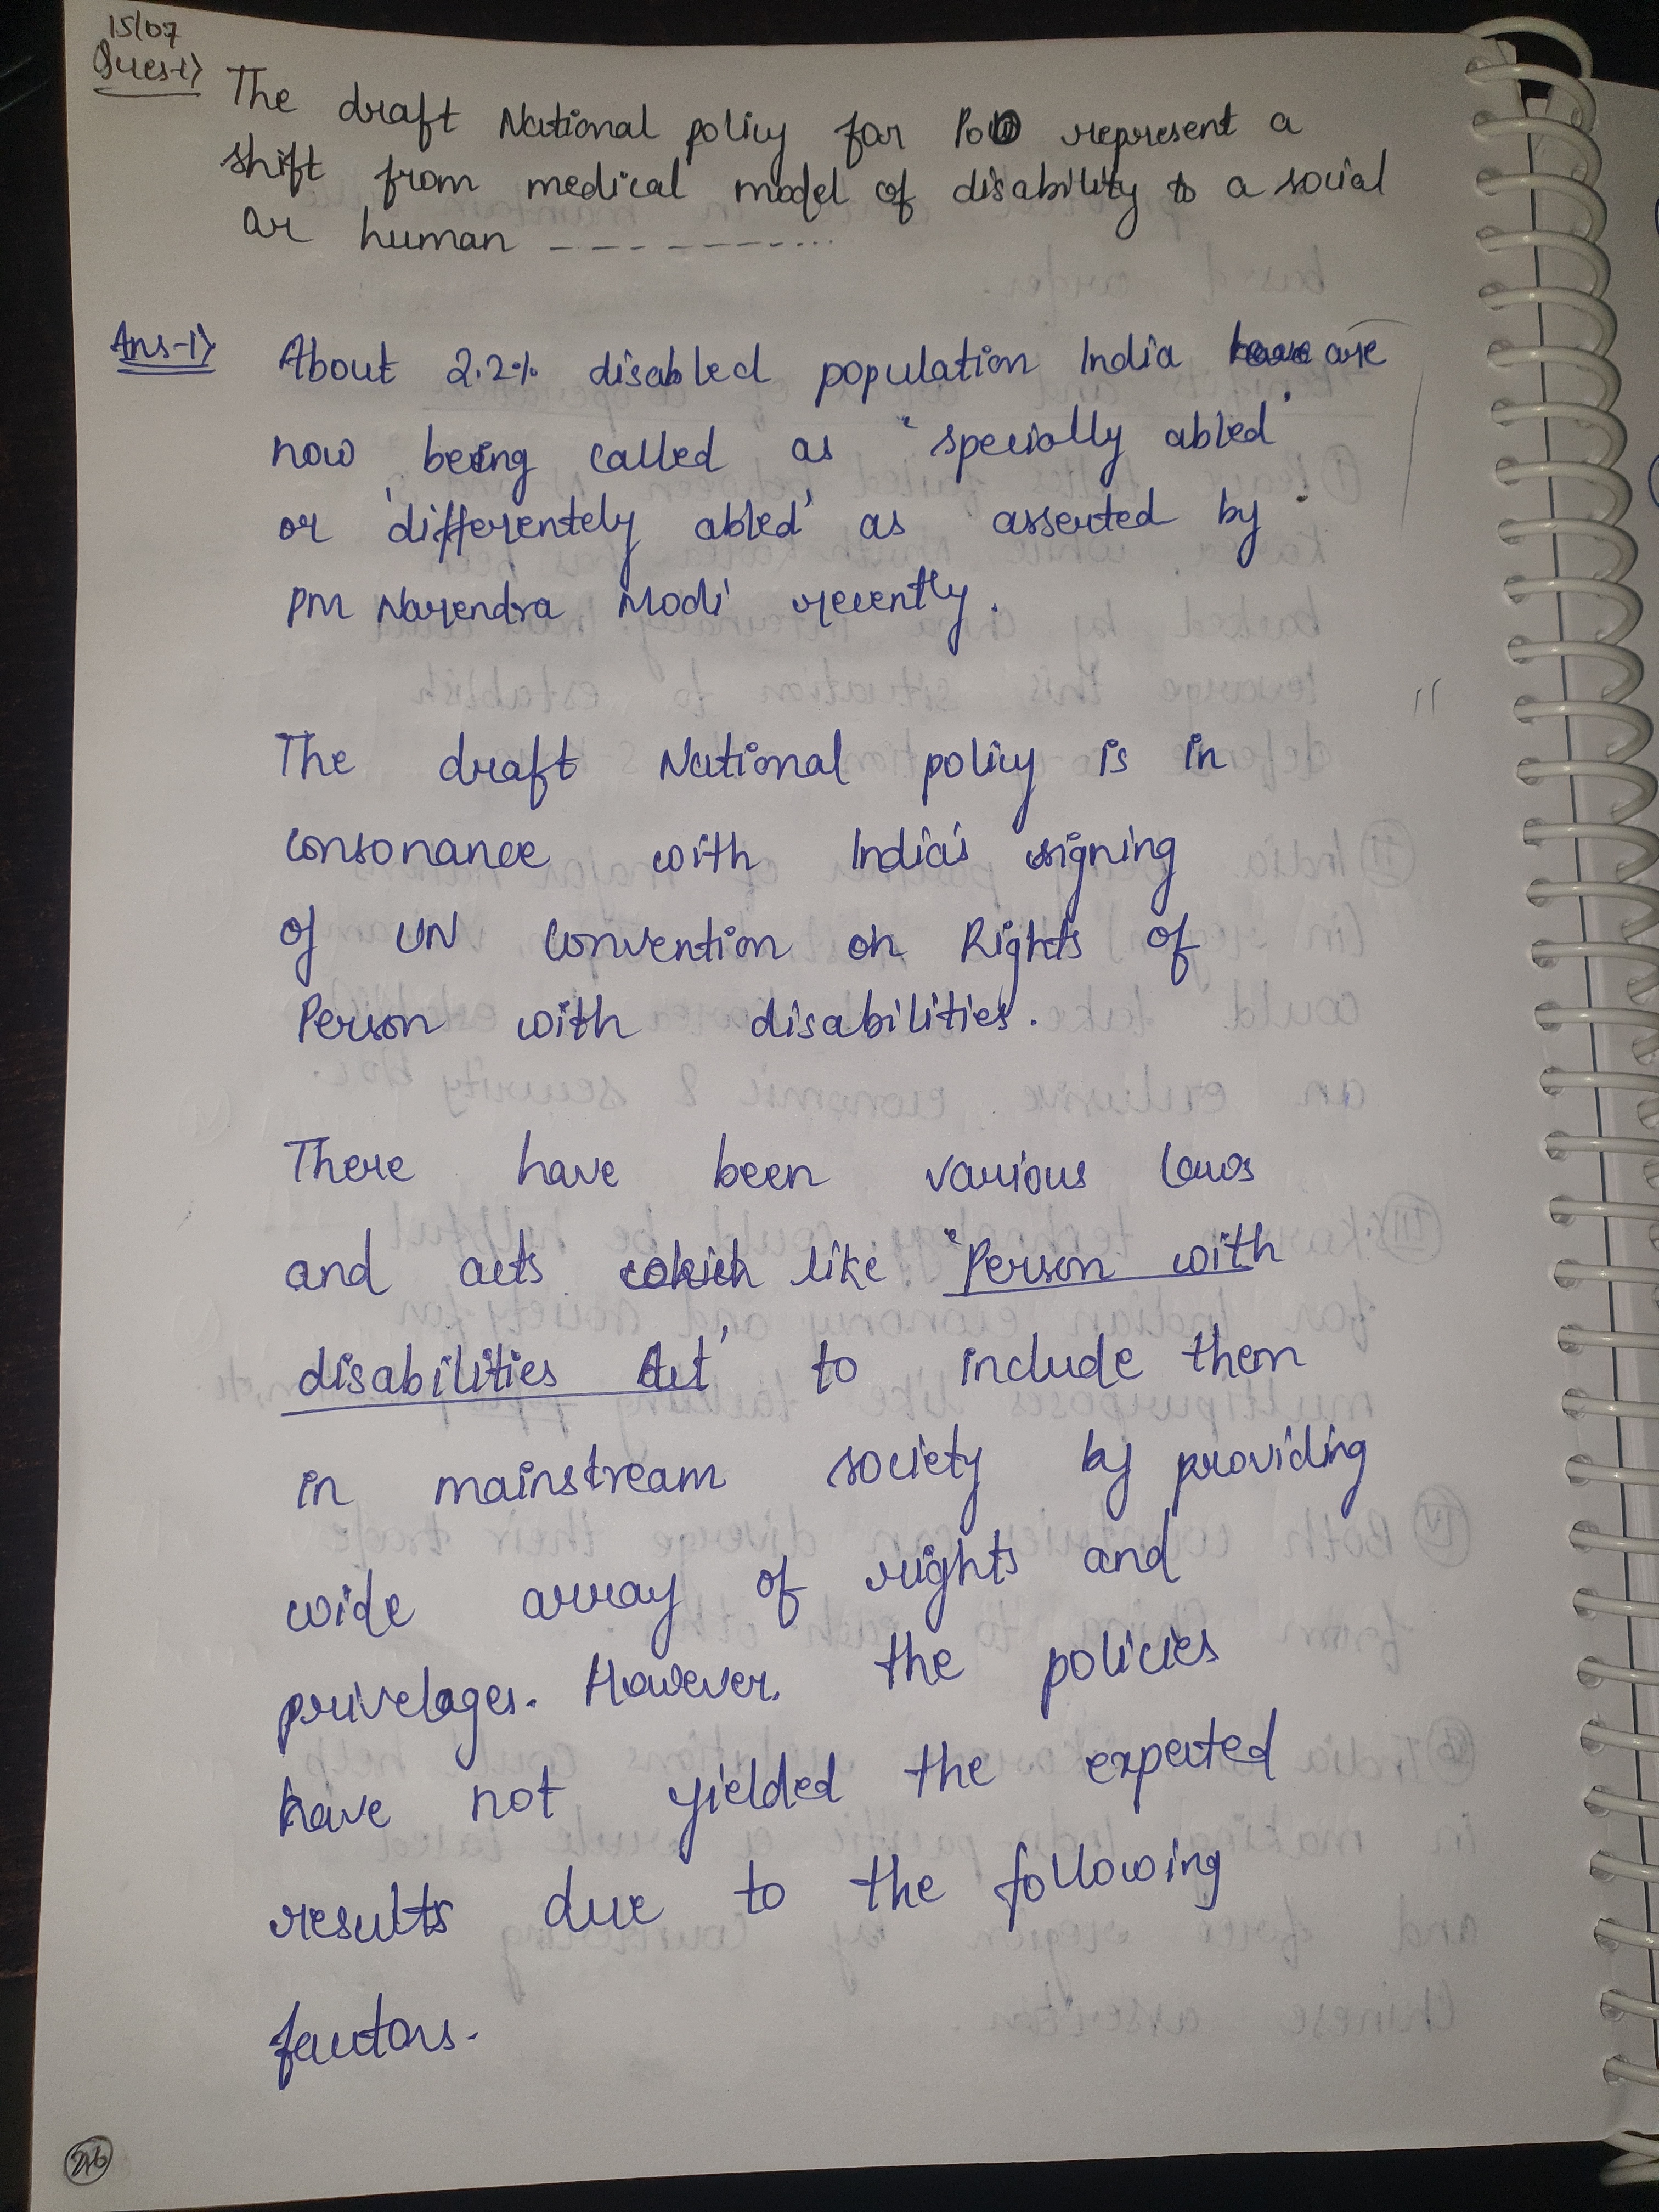 15/07
Ques-1>
The draft National policy for PoD represent a
shift from medical model of disability to a social
or human ----------
Ans-1>
About 2.2% disabled population India are
now being called as 'specially abled'
or 'differentely abled' as asserted by
PM Narendra Modi recently.
The draft National policy is in
consonance with India's signing
of UN Convention on Rights of
Person with disabilities.
There have been various laws
and acts which like "Person with
disabilities Act" to include them
in mainstream society by providing
wide array of rights and
privelages. However, the policies
have not yielded the expected
results due to the following
factors.